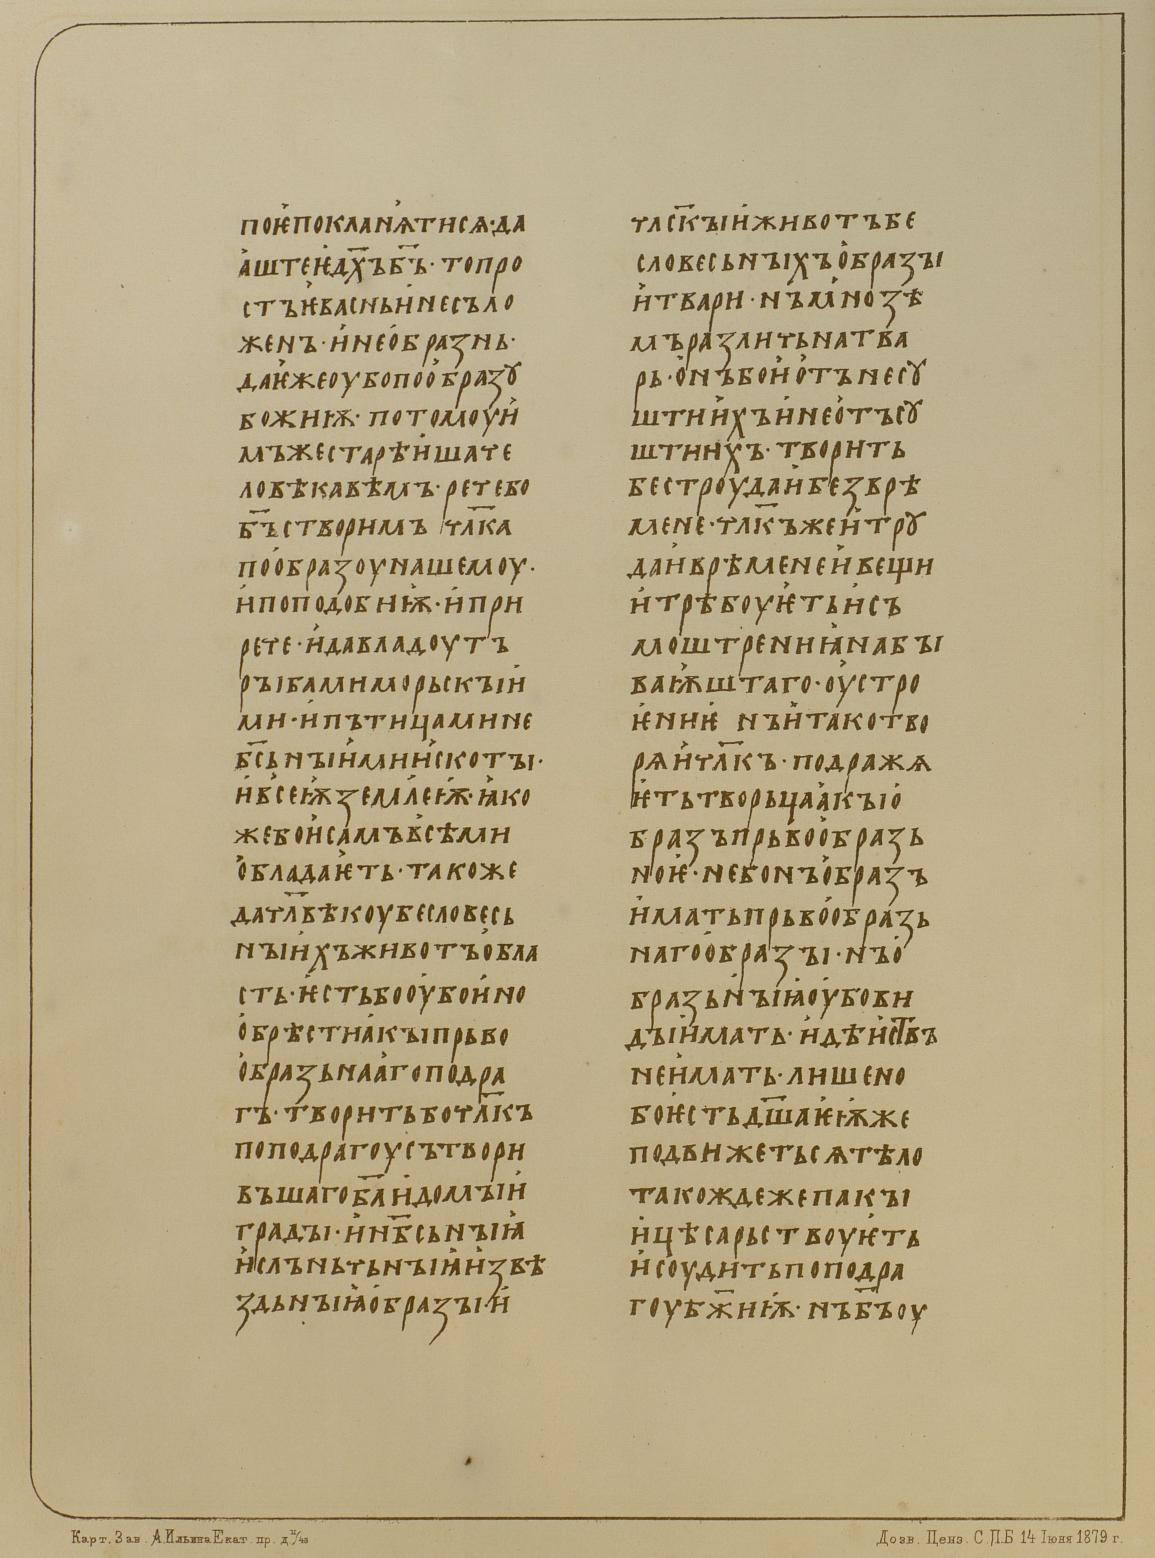 поѥ҆покланꙗ҆тисѧ·да
а҆штеѥ҆дх҃ъб҃ъ·топро
стъѥ҆васньи҆несъло
женъ·и҆нео҆бразнь·
даѥ҆жеоубопоо҆бразꙋ
божиѭ·потомоуи҆
мъжестарѣи҆шаче
ловѣкавѣмъ·речебо
б҃ъстворимъ чл҃ка
поо҆бразоунашемоу·
и҆поподобиѭ·и҆при
рече·и҆давладоуть
рꙑбамиморьскꙑи҆
ми·и҆пътицамине
б҃сьнꙑи҆мии҆скотꙑ·
и҆всеѭ҆землеѭ҆·ꙗ҆ко
жебои҆самъвсѣми
о҆бладаѥ҆ть·такоже
дачл҃вѣкоубесловесь
нꙑи҆хъживотъо҆бла
сть·ѥ҆стьбооу҆бои҆но
о҆брѣстиа҆кꙑпрьво
о҆бразьнаа҆гоподра
гъ·творитьбочл҃къ
поподрагоусътвори
въшагоб҃аи҆домꙑи҆
градꙑ·и҆нб҃сьнꙑꙗ҆
и҆слъньчьнꙑꙗ҆и҆звѣ
здьнꙑꙗ҆о҆бразꙑ·и҆
члс҃кꙑи҆животъбе
словесьнꙑхъо҆бразꙑ
и҆твари·нъм̾нозѣ
мъразличьнатва
рь·о҆нъбои҆о҆тънесꙋ
штии҆хъи҆нео҆тъсꙋ
штиихъ·творить
бестроудаи҆безврѣ
мене·чл҃къжеи҆трꙋ
даи҆врѣменеи҆вещи
и҆трѣбоуѥ҆тьи҆съ
моштрениꙗ҆набꙑ
ваѭ҆штаго·оу҆стро
ѥ҆ниѥ҆ нъи҆такотво
рѧи҆чл҃къ·подражѧ
ѥ҆тьтворьцаа҆кꙑо҆
бразъпрьвоо҆бразь
ноѥ҆·небонъо҆бразъ
и҆матьпрьвоо҆бразь
нагоо҆бразꙑ·нъо҆
бразьнꙑꙗ҆оу҆бови
дꙑи҆мать·и҆дѣи҆ств҃ъ
неи҆мать·лишено
боѥ҆стьдш҃аѥ҆ѭ҆же
подвижетьсѧтѣло
такождежепакꙑ
и҆цѣсарьствоуѥ҆ть
и҆соудитьпоподра
гоубж҃иѭ҆·нъб҃ъоу
Карт. Зав. А.Ильина Екат. пр. д.
Дозв. Ценз. С.П.Б 14 Іюня 1879 г.